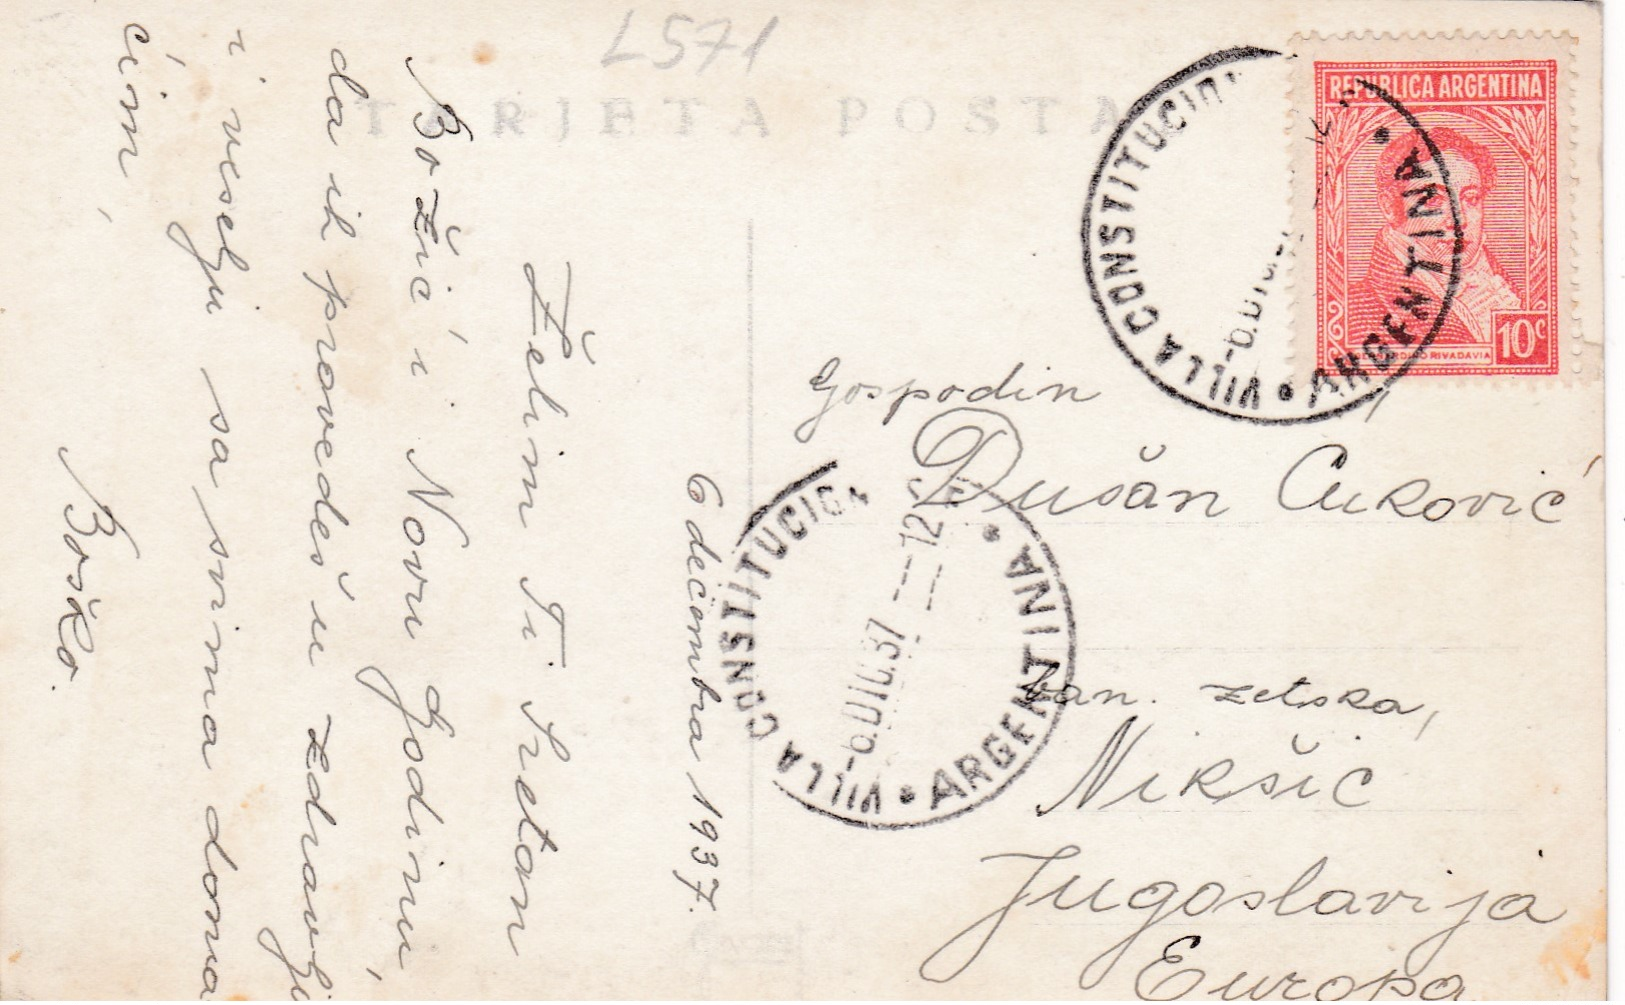 L571
TARJETA POSTAL
REPUBLICA ARGENTINA
10c
RIVADAVIA
VILLA CONSTITUCION • ARGENTINA •
VILLA CONSTITUCION • ARGENTINA •
-6.DIC.37
12
6 decembra 1937.
Želim Ti Sretan
Božić i Novu godinu,
da ih provedeš u zdravlju
i veselju sa svima doma
ćim,
Boško.
Gospodin,
Dušan Cuković
ban. zetska,
Nikšić
Jugoslavija
Europa